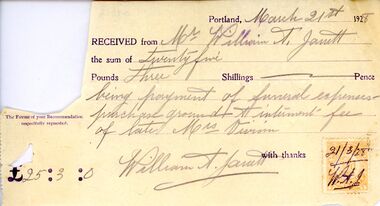 Portland, March 21st 1928
RECEIVED from Mr William A. Jarrett
the sum of twenty five
Pounds Three Shillings Pence
being payment of funeral expenses
purchase ground & interment fee
of late Mrs
The Favour of your Recommendation
respectfully requested.
with thanks
£25:3:0
William A. Jarrett
21/3/28
W.A.J